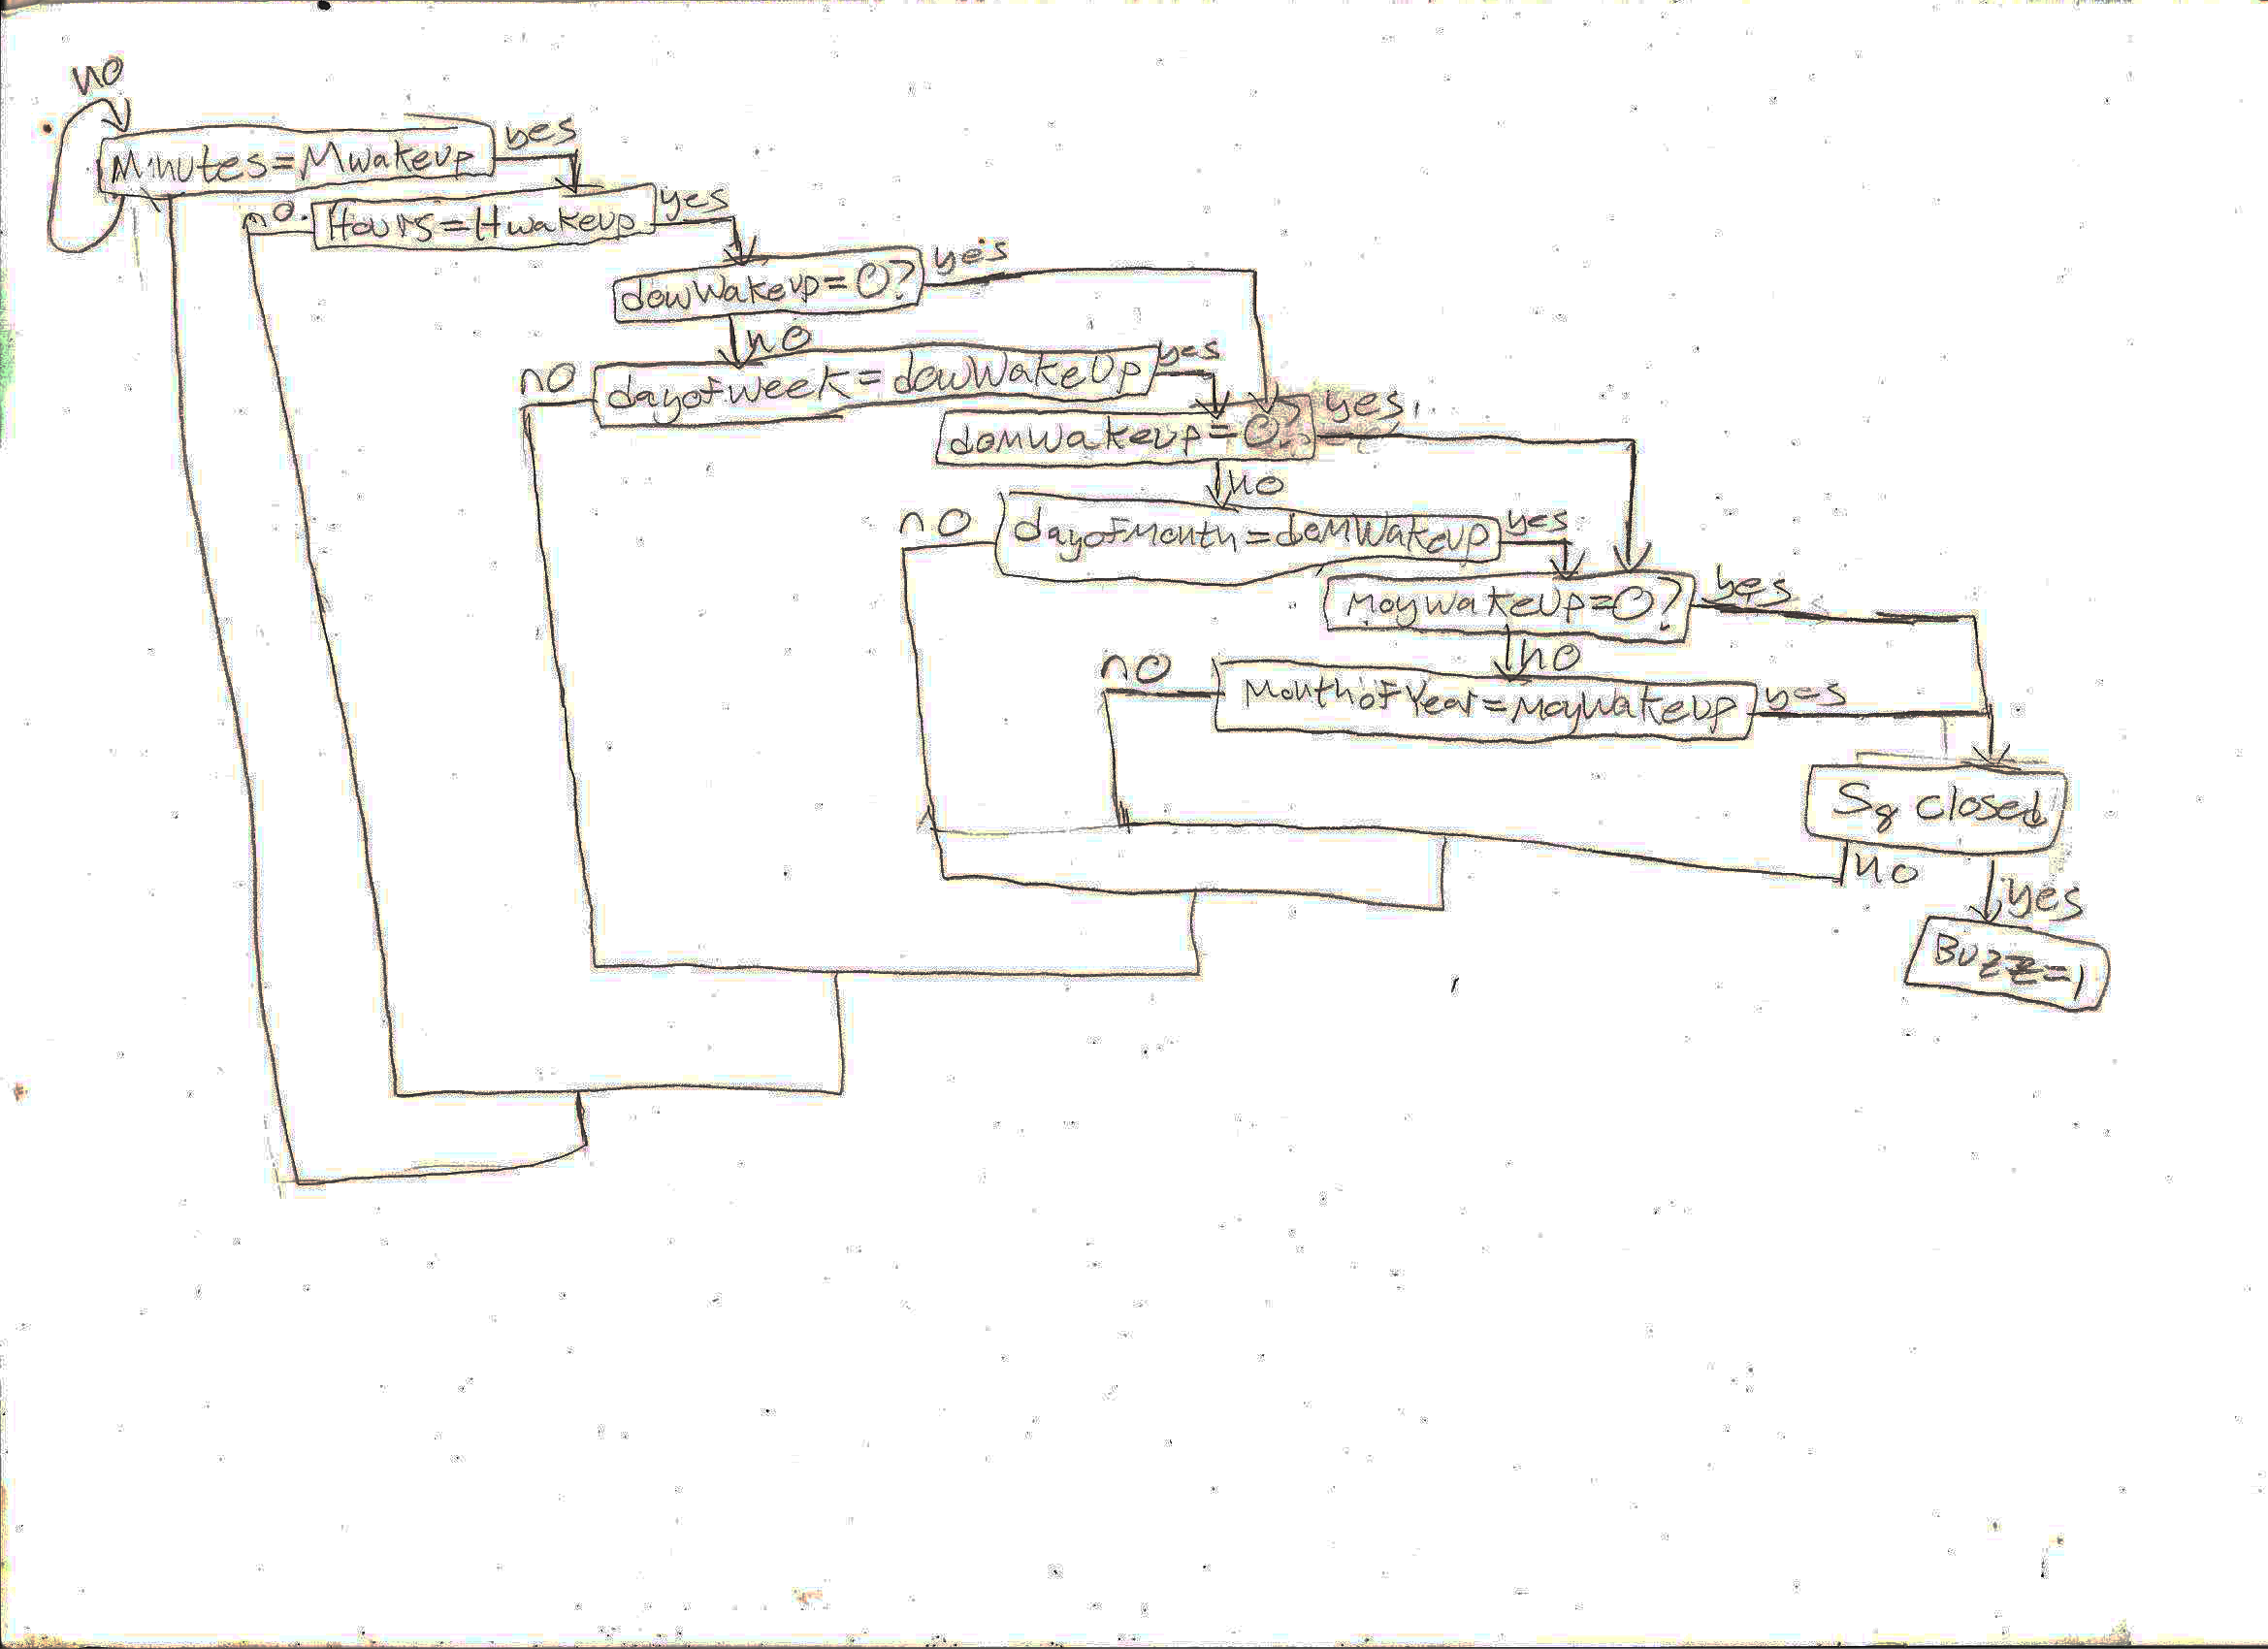 no
Minutes=Mwakeup yes
no. Hours=Hwakeup yes
dowWakeup=0? yes
no
no dayofweek=dowWakeUp yes
domWakeup=0? yes
no
no dayofMonth=domWakeup yes
MoyWakeUp=0? yes
no
no MonthofYear=MoyWakeup yes
S8 closed
no
yes
Buzz=1